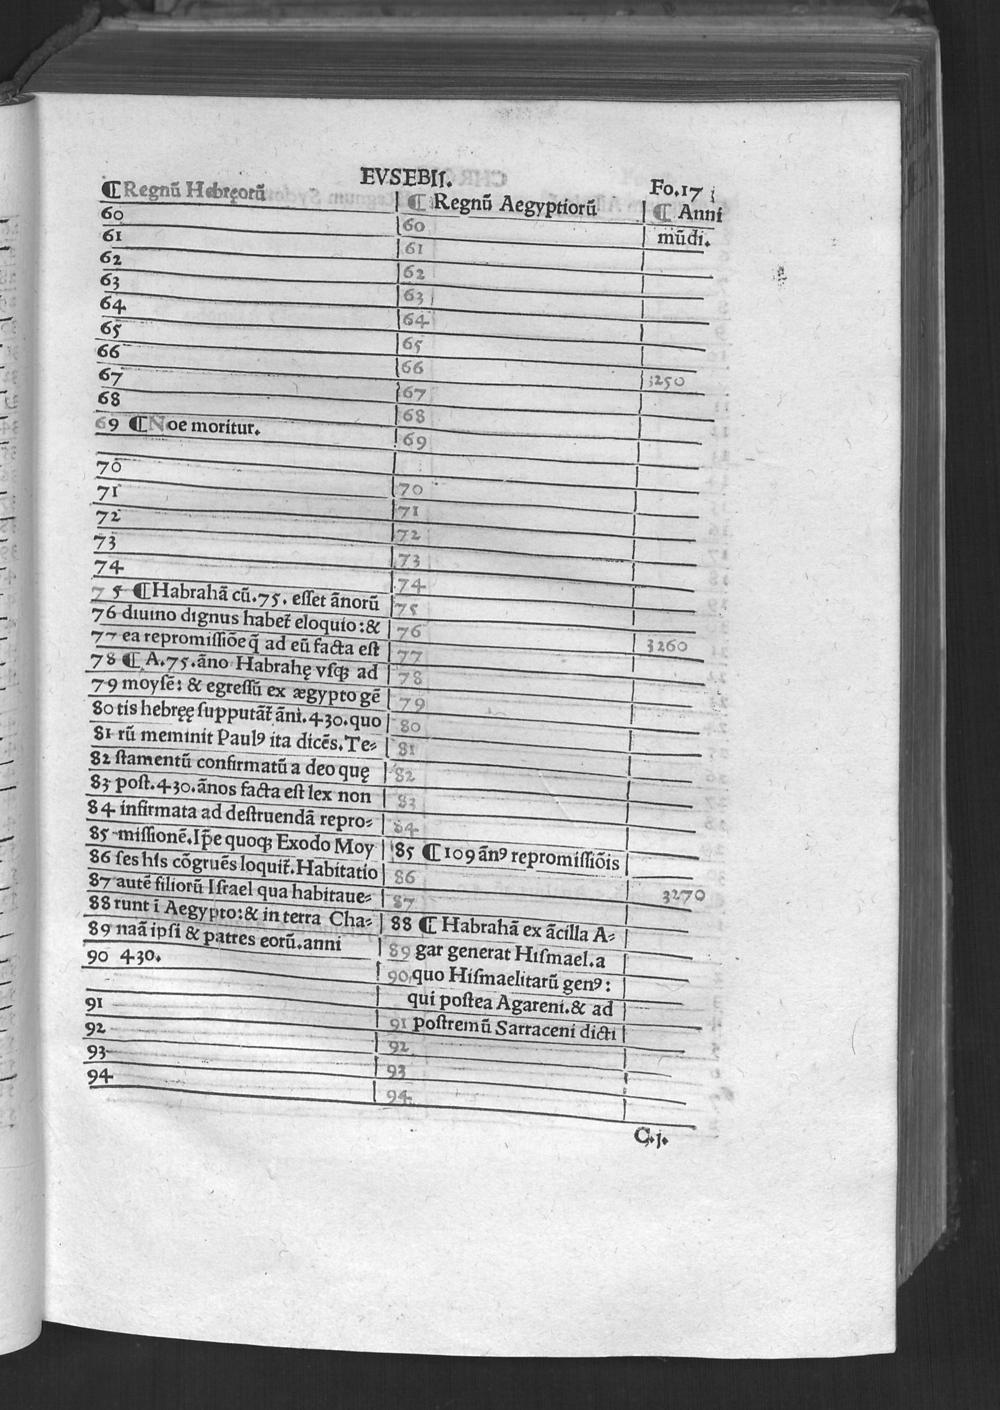 EVSEBII.
Fo.17
¶ Regnũ Hebręorũ
¶ Regnũ Aegyptiorũ
¶ Anni
mũdi.
60
61
62
63
64
65
66
67
68
69 ¶ Noe moritur.
70
71
72
73
74
75 ¶ Habrahã cũ.75. esset ãnorũ
76 diuino dignus habet̃ eloquio:&
77 ea repromissiõe q̃ ad eũ facta est
78 ¶ A.75.ãno Habrahę vsqꝫ ad
79 moysẽ: & egressũ ex ægypto gẽ
80 tis hebręę supputãt̃ ãni.430.quo
81 rũ meminit Paulꝰ ita dicẽs.Te⸗
82 stamentũ confirmatũ a deo quę
83 post.430.ãnos facta est lex non
84 infirmata ad destruendã repro⸗
85 missionẽ.Ip̃e quoqꝫ Exodo Moy
86 ses his cõgruẽs loquit̃.Habitatio
87 autẽ filiorũ Israel qua habitaue⸗
88 runt ĩ Aegypto:& in terra Cha⸗
89 naã ipsi & patres eorũ.anni
90 430.
91
92
93
94
60
61
62
63
64
65
66
67
68
69
70
71
72
73
74
75
76
77
78
79
80
81
82
83
84
85 ¶ 109 ãnꝰ repromissiõis
86
87
88 ¶ Habrahã ex ãcilla A⸗
89 gar generat Hismael.a
90 quo Hismaelitarũ genꝰ:
qui postea Agareni.& ad
91 postremũ Sarraceni dicti
92
93
94
3250
3260
3270
C.j.